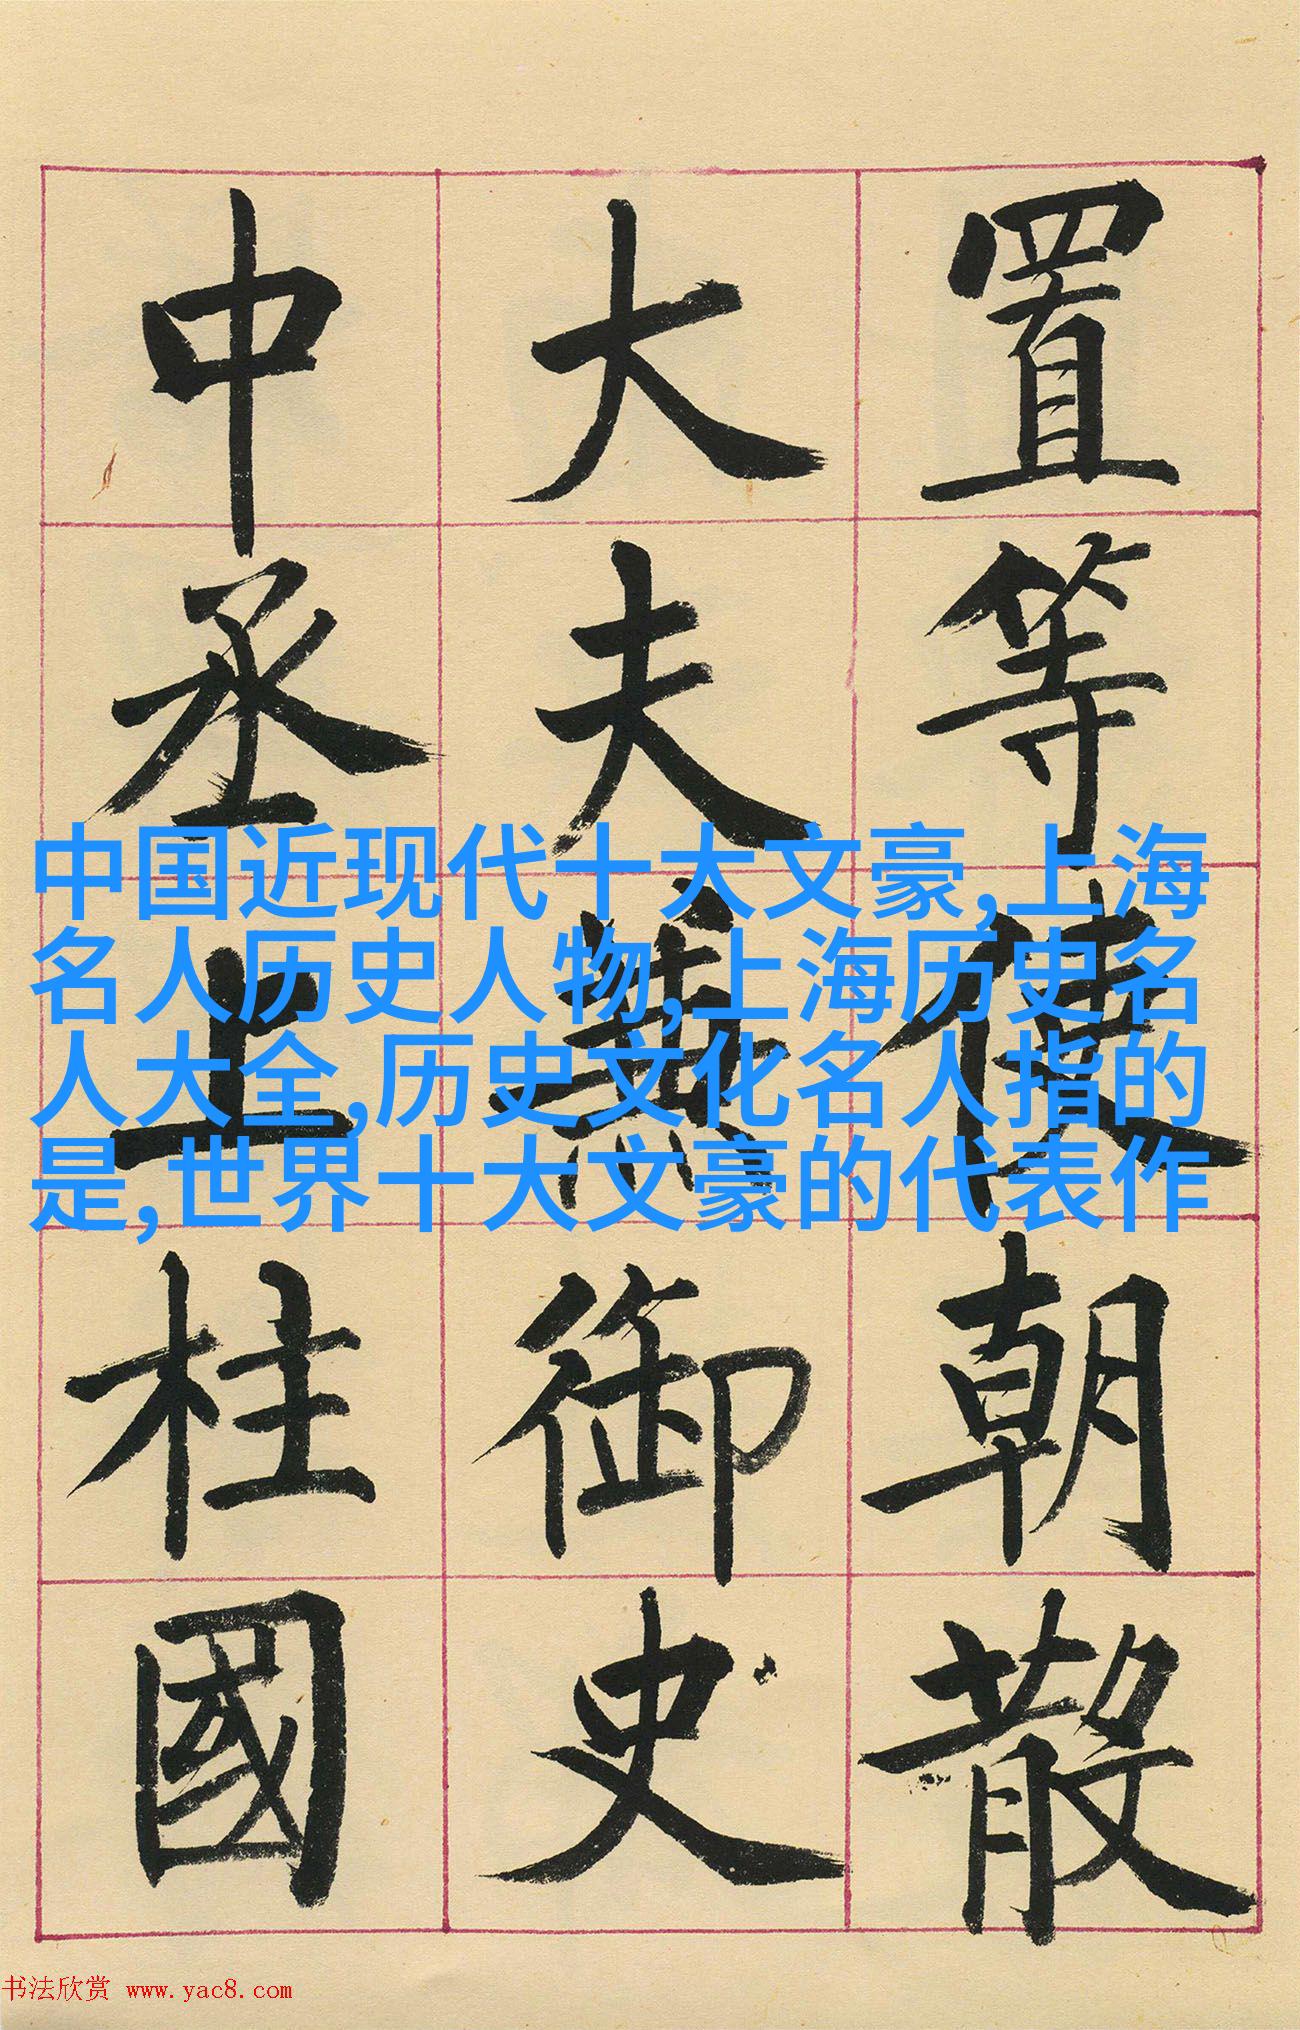 置等使朝散
大夫兼御史
中丞上柱國
中国近现代十大文豪,上海
名人历史人物,上海历史名
人大全,历史文化名人指的
是,世界十大文豪的代表作
书法欣赏 www.yac8.com